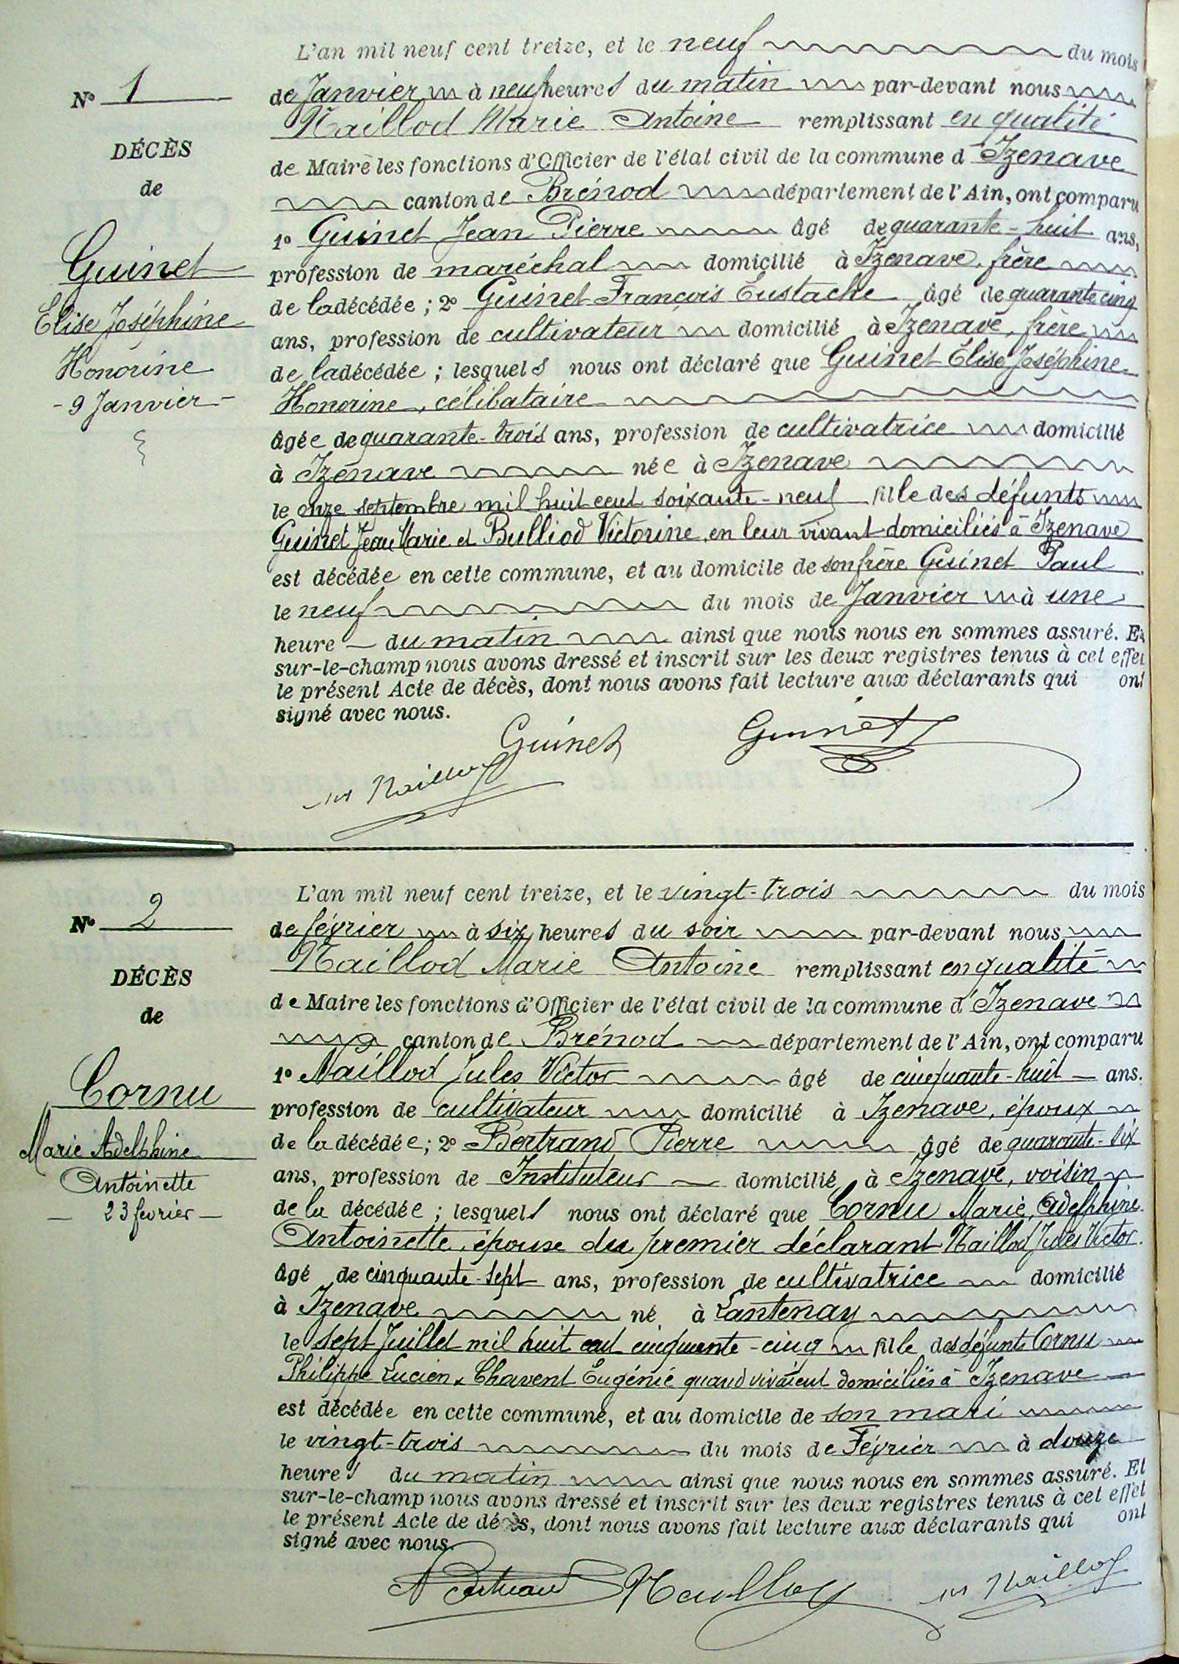 L'an mil neuf cent treize, et le neuf du mois
N° 1
de Janvier à neuf heures du matin par-devant nous
Naillod Marie Antoine remplissant en qualité
DÉCÈS
de Maire les fonctions d'Officier de l'état civil de la commune d'Izenave
de
canton de Brénod département de l'Ain, ont comparu
1° Guinet Jean Pierre âgé de quarante-huit ans,
Guinet
profession de maréchal domicilié à Izenave, frère
de la décédée ; 2° Guinet François Eustache âgé de quarante cinq
Elise Joséphine
ans, profession de cultivateur domicilié à Izenave, frère
Honorine
de la décédée ; lesquels nous ont déclaré que Guinet Elise Joséphine
- 9 Janvier -
Honorine, célibataire
âgée de quarante-trois ans, profession de cultivatrice domicilié
à Izenave née à Izenave
le onze septembre mil huit cent soixante-neuf fille des défunts
Guinet Jean Marie et Bulliod Victorine, en leur vivant domiciliés à Izenave
est décédée en cette commune, et au domicile de son frère Guinet Paul
le neuf du mois de Janvier à une
heure du matin ainsi que nous nous en sommes assuré. Et
sur-le-champ nous avons dressé et inscrit sur les deux registres tenus à cet effet
le présent Acte de décès, dont nous avons fait lecture aux déclarants qui ont
signé avec nous.
Guinet Guinet
Naillod
L'an mil neuf cent treize, et le vingt-trois du mois
N° 2
de février à six heures du soir par-devant nous
Naillod Marie Antoine remplissant en qualité
DÉCÈS
de Maire les fonctions d'Officier de l'état civil de la commune d'Izenave
de
canton de Brénod département de l'Ain, ont comparu
1° Naillod Jules Victor âgé de cinquante-huit ans.
Cornu
profession de cultivateur domicilié à Izenave, époux
de la décédée ; 2° Bertrand Pierre âgé de quarante-six
Marie Adelphine
ans, profession de Instituteur domicilié à Izenave, voisin
Antoinette
de la décédée ; lesquels nous ont déclaré que Cornu Marie, Adelphine
- 23 février -
Antoinette, épouse du premier déclarant Naillod Jules Victor.
âgé de cinquante-sept ans, profession de cultivatrice domicilié
à Izenave né à Lantenay
le sept Juillet mil huit cent cinquante-cinq fille des défunts Cornu
Philippe Lucien & Chavent Eugénie quand vivaient domiciliés à Izenave
est décédée en cette commune, et au domicile de son mari
le vingt-trois du mois de Février à douze
heures du matin ainsi que nous nous en sommes assuré. Et
sur-le-champ nous avons dressé et inscrit sur les deux registres tenus à cet effet
le présent Acte de décès, dont nous avons fait lecture aux déclarants qui ont
signé avec nous.
Bertrand Naillod Naillod